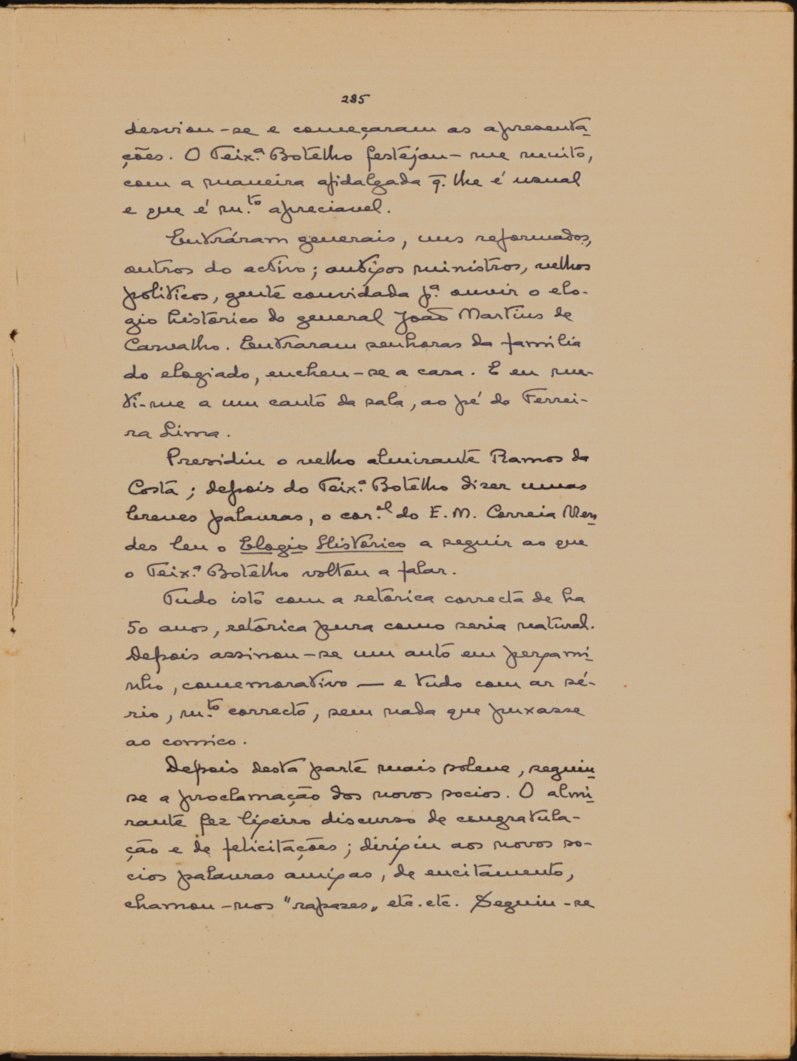 285
desviou-se e começaram as apresenta
ções. O Teix.ª Botelho festejou-me muito,
com a maneira afidalgada q̃. lhe é usual
e que é m.to apreciavel.
Entráram generais, uns reformados,
outros do activo; antigos ministros, velhos
politicos, gente convidada p.ª ouvir o elo-
gio historico do general João Martins de
Carvalho. Entraram senhoras da familia
do elogiado, encheu-se a casa. E eu me-
ti-me a um canto da sala, ao pé do Ferrei-
ra Lima.
Presidiu o velho almirante Ramos da
Costa; depois do Teix.ª Botelho dizer umas
breves palavras, o cor.el do E. M. Correia Men
des leu o Elogio Historico a seguir ao que
o Teix.ª Botelho voltou a falar.
Tudo isto com a retorica correcta de ha
50 anos, retorica pura como seria natural.
Depois assinou-se um auto em pergami
nho, comemorativo — e tudo com ar sé-
rio, m.to correcto, sem nada que puxasse
ao comico.
Depois desta parte mais solene, seguiu
se a proclamação dos novos socios. O almi
rante fez ligeiro discurso de congratula-
ção e de felicitações; dirigiu aos novos so-
cios palavras amigas, de encitamento,
chamou-nos "rapazes„ etc. etc. Seguiu-se